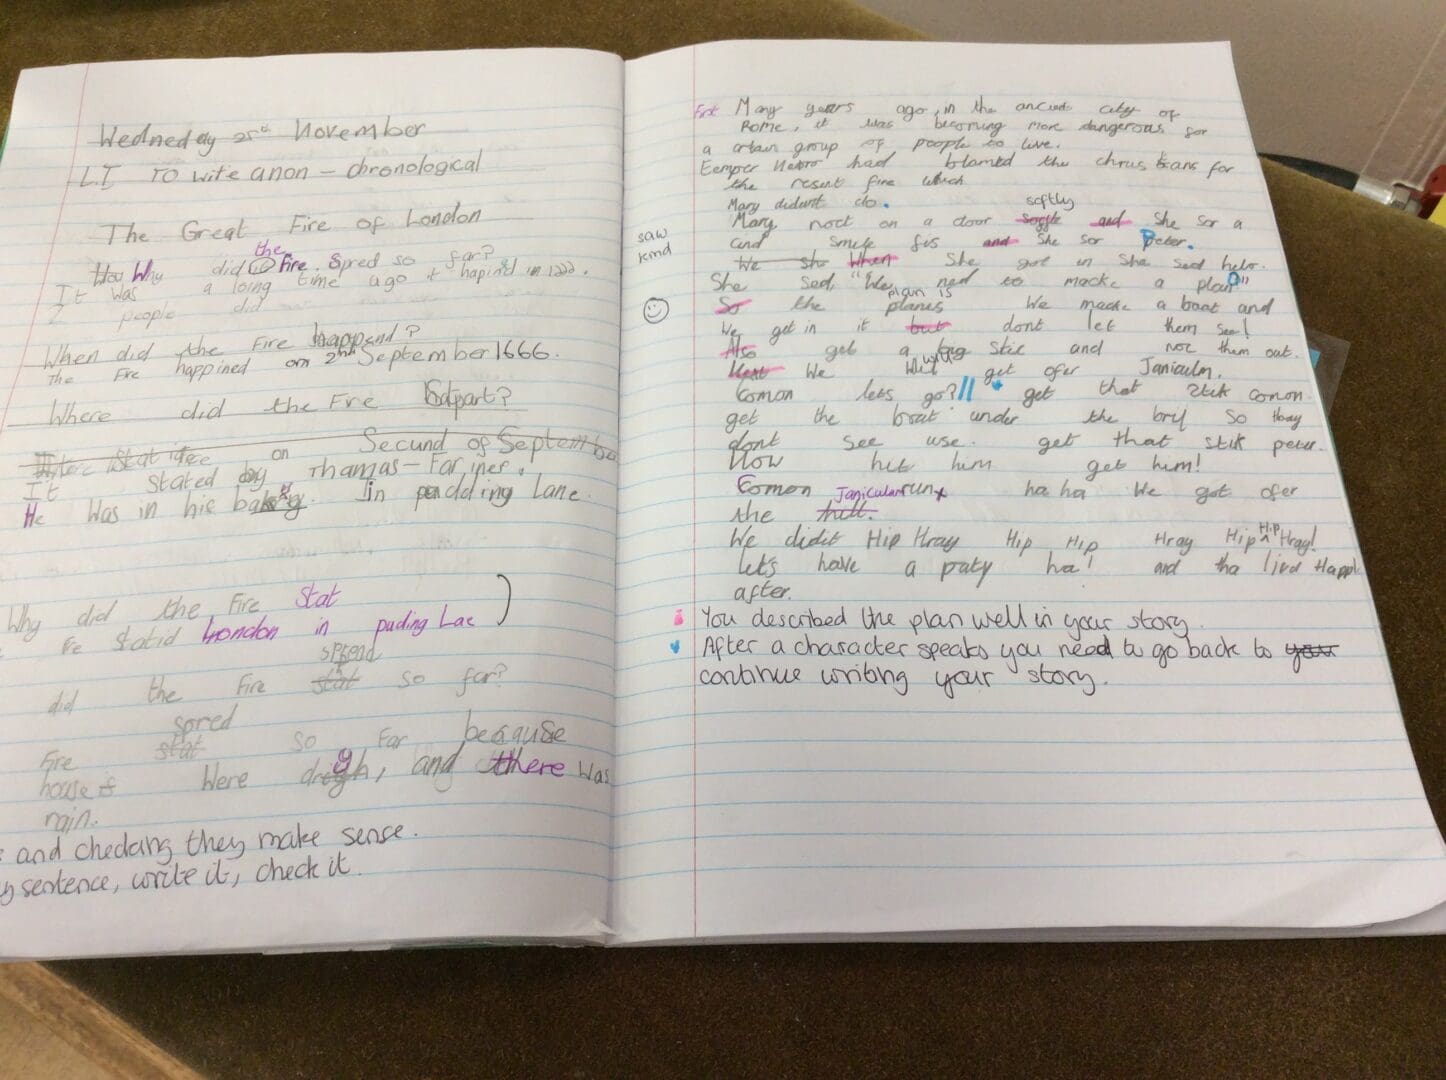 Wedneday 25th November
L.I To wite a non - chronological
The Great Fire of London
How Why did the Fire. Spred so far?
It was a loing time ago it hapind in
people did
When did the Fire happend?
The Fire happined on 2nd September 1666.
Where did the Fre Sdpart?
on Secund of Septembe
It stated by Thamas-Fariner.
He was in his in pudding Lane.
Why did the Fire Stat
Fe Statid London in puding Lae
spread
did the Fire stat so far?
spred
Fire stat so Far because
house were and there was
rain.
and checking they make sense.
sentence, write it, check it.
First Many years ago, in the city of
Rome, it was becoming more dangerous for
a crtain group of people to live.
Eemper had blamed the for
the resent fire which
Mary didunt do.
softly
Mary noct on a door and She sor a
saw
kind
and smile fis and she sor Peter.
We sho When She got in She sed helo.
She sed, "We ned to macke a plan"
plan is
So the planes We macke a boat and
We get in it but dont let them see!
Also get a big Stic and noc them out.
Next We will get ofer Janiculm.
Comon lets go?// get that Stik comon.
get the boat under the brij so thay
dont see use. get that stik peter.
Now hit him get him!
Comon run ha ha We got ofer
Janicular
the hill.
We didit Hip Hray Hip Hip Hray Hip Hip Hray!
let's have a paty ha! and tha livd Happl
after.
You described the plan well in your story.
After a character speaks you need to go back to your
continue writing your story.